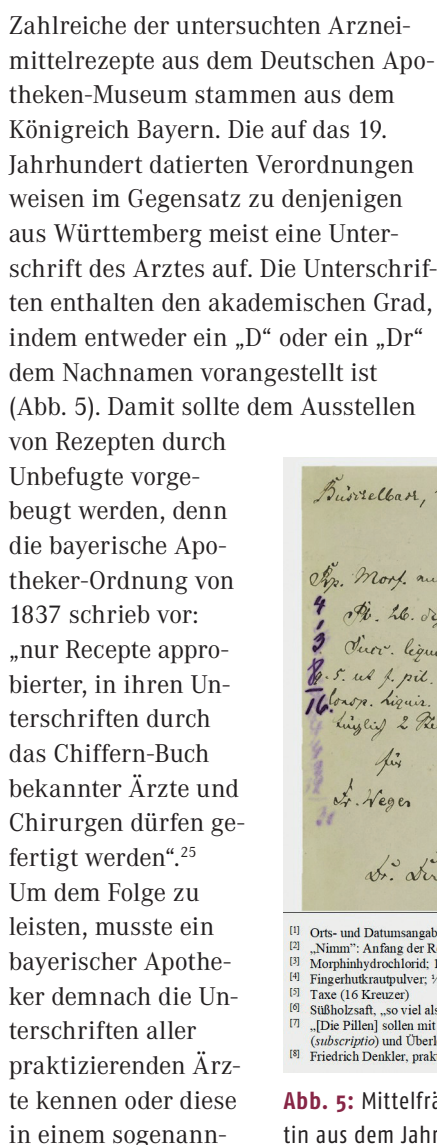 Zahlreiche der untersuchten Arznei-
mittelrezepte aus dem Deutschen Apo-
theken-Museum stammen aus dem
Königreich Bayern. Die auf das 19.
Jahrhundert datierten Verordnungen
weisen im Gegensatz zu denjenigen
aus Württemberg meist eine Unter-
schrift des Arztes auf. Die Unterschrif-
ten enthalten den akademischen Grad,
indem entweder ein „D“ oder ein „Dr“
dem Nachnamen vorangestellt ist
(Abb. 5). Damit sollte dem Ausstellen
von Rezepten durch
Unbefugte vorge-
beugt werden, denn
die bayerische Apo-
theker-Ordnung von
1837 schrieb vor:
„nur Recepte appro-
bierter, in ihren Un-
terschriften durch
das Chiffern-Buch
bekannter Ärzte und
Chirurgen dürfen ge-
fertigt werden“.25
Um dem Folge zu
leisten, musste ein
bayerischer Apothe-
ker demnach die Un-
terschriften aller
praktizierenden Ärz-
te kennen oder diese
in einem sogenann-
Morf.
4
3
8
16
für
[1] Orts- und Datumsangab
[2] „Nimm”: Anfang der R
[3] Morphinhydrochlorid;
[4] Fingerhutkrautpulver;
[5] Taxe (16 Kreuzer)
[6] Süßholzsaft, „so viel als
[7] „[Die Pillen] sollen mit
(subscriptio) und Überl
[8] Friedrich Denkler, prak
Abb. 5: Mittelfrä
tin aus dem Jahr